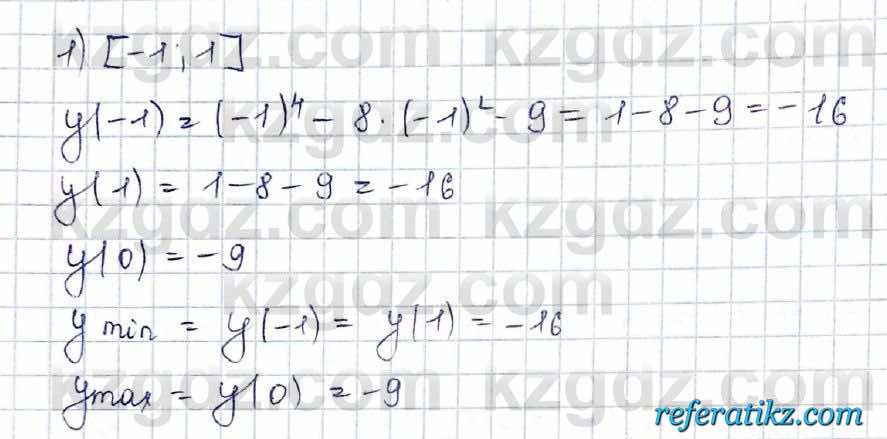 1) [-1; 1]
y(-1) = (-1)⁴ - 8 · (-1)² - 9 = 1 - 8 - 9 = -16
y(1) = 1 - 8 - 9 = -16
y(0) = -9
y min = y(-1) = y(1) = -16
y max = y(0) = -9
kzgdz.com kzgdz.com
kzgdz.com
kzgdz.com kzgdz.com
kzgdz.com
kzgdz.com kzgdz.com
referatikz.com